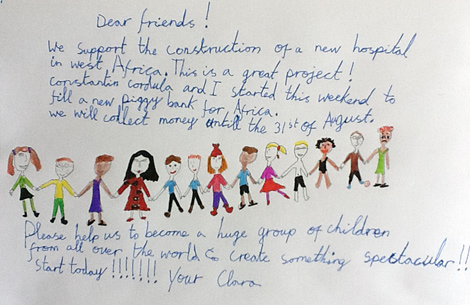 Dear friends!
We support the construction of a new hospital
in west Africa. This is a great project!
constantin cordula and I started this weekend to
fill a new piggy bank for Africa.
we will collect money untill the 31st of August.
Please help us to become a huge group of children
from all over the world & create something spectacular!!
start today!!!!!!! your Clara